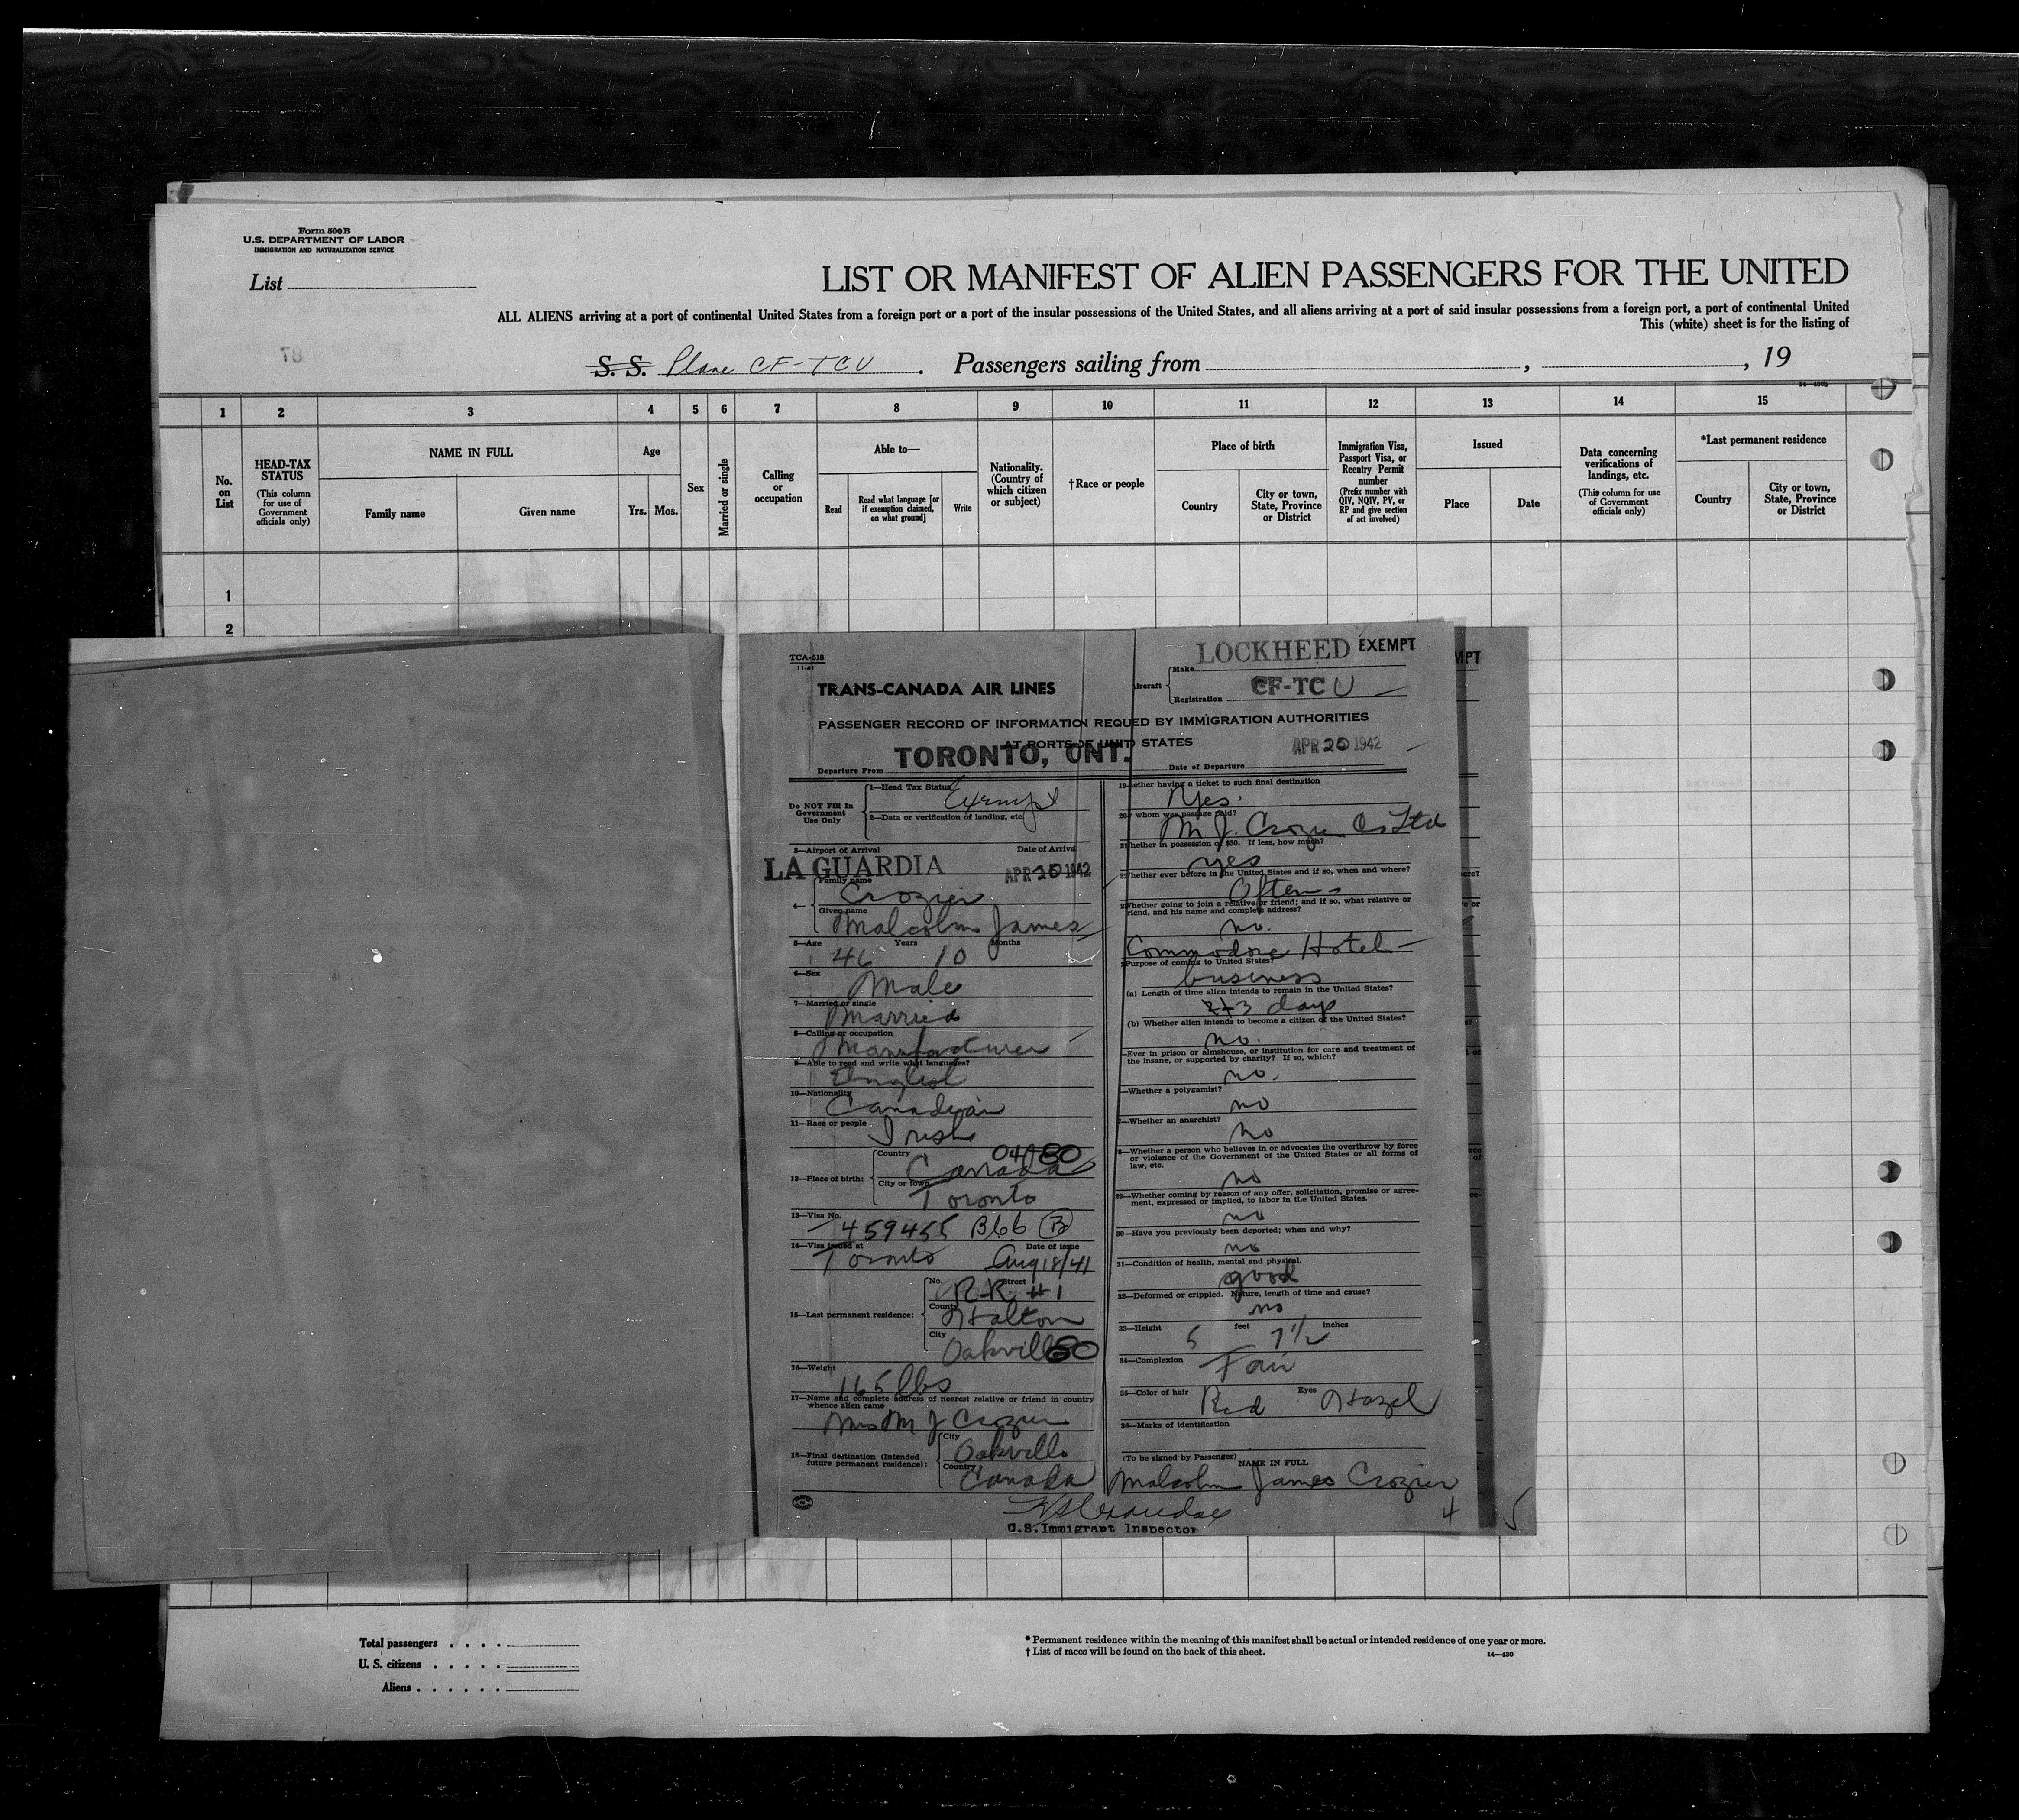 Form 500B
U.S. DEPARTMENT OF LABOR
IMMIGRATION AND NATURALIZATION SERVICE
List
LIST OR MANIFEST OF ALIEN PASSENGERS FOR THE UNITED
ALL ALIENS arriving at a port of continental United States from a foreign port or a port of the insular possessions of the United States, and all aliens arriving at a port of said insular possessions from a foreign port, a port of continental United
This (white) sheet is for the listing of
S. S. Plane CF-TCU . Passengers sailing from , , 19
1 2 3 4 5 6 7 8 9 10 11 12 13 14 15
No. on List
HEAD-TAX STATUS
(This column for use of Government officials only)
NAME IN FULL
Family name
Given name
Age
Yrs. Mos.
Sex
Married or single
Calling or occupation
Able to—
Read
Read what language [or if exemption claimed, on what ground]
Write
Nationality. (Country of which citizen or subject)
†Race or people
Place of birth
Country
City or town, State, Province or District
Immigration Visa, Passport Visa, or Reentry Permit number
(Prefix number with QIV, NQIV, PV, or RP and give section of act involved)
Issued
Place
Date
Data concerning verifications of landings, etc.
(This column for use of Government officials only)
*Last permanent residence
Country
City or town, State, Province or District
1
2
TCA-518
11-41
TRANS-CANADA AIR LINES
LOCKHEED EXEMPT
Aircraft
Make
Registration CF-TC U
PASSENGER RECORD OF INFORMATION REQUED BY IMMIGRATION AUTHORITIES
AT PORTS OF UNIT STATES
Departure From TORONTO, ONT.
Date of Departure APR 20 1942
Do NOT Fill In Government Use Only
1—Head Tax Status Exempt
2—Data or verification of landing, etc.
3—Airport of Arrival Date of Arrival
LA GUARDIA APR 20 1942
4—
Family name Crozier
Given name Malcolm James
5—Age 46 Years 10 Months
6—Sex Male
7—Married or single Married
8—Calling or occupation Manufacturer
9—Able to read and write what languages? English
10—Nationality Canadian
11—Race or people Irish
04180
12—Place of birth: Country Canada
City or town Toronto
13—Visa No. 459455 B66 B
14—Visa issued at Toronto Date of issue Aug 18/41
15—Last permanent residence: No. Street RR #1
County Halton
City Oakville 80
16—Weight 165 lbs
17—Name and complete address of nearest relative or friend in country whence alien came
Mrs M J Crozier
18—Final destination (Intended future permanent residence): City Oakville
Country Canada
19 ether having a ticket to such final destination
Yes.
20 whom was passage paid?
M J. Crozier Co Ltd
21 hether in possession of $50. If less, how much?
yes
Whether ever before in the United States and if so, when and where?
Often
Whether going to join a relative or friend; and if so, what relative or
riend, and his name and complete address?
no.
Commodore Hotel
Purpose of coming to United States?
business
(a) Length of time alien intends to remain in the United States?
3 days
(b) Whether alien intends to become a citizen of the United States?
no.
—Ever in prison or almshouse, or institution for care and treatment of
the insane, or supported by charity? If so, which?
no.
—Whether a polygamist?
no
—Whether an anarchist?
no
—Whether a person who believes in or advocates the overthrow by force
or violence of the Government of the United States or all forms of
law, etc.
no
29—Whether coming by reason of any offer, solicitation, promise or agree-
ment, expressed or implied, to labor in the United States.
no
30—Have you previously been deported; when and why?
no
31—Condition of health, mental and physical.
good
32—Deformed or crippled. Nature, length of time and cause?
no
33—Height 5 feet 7 1/2 inches
34—Complexion Fair
35—Color of hair Red Eyes Hazel
36—Marks of identification
(To be signed by Passenger) NAME IN FULL
Malcolm James Crozier
4
5
U.S. Immigrant Inspector
Total passengers
U. S. citizens
Aliens
* Permanent residence within the meaning of this manifest shall be actual or intended residence of one year or more.
† List of races will be found on the back of this sheet.
14—430